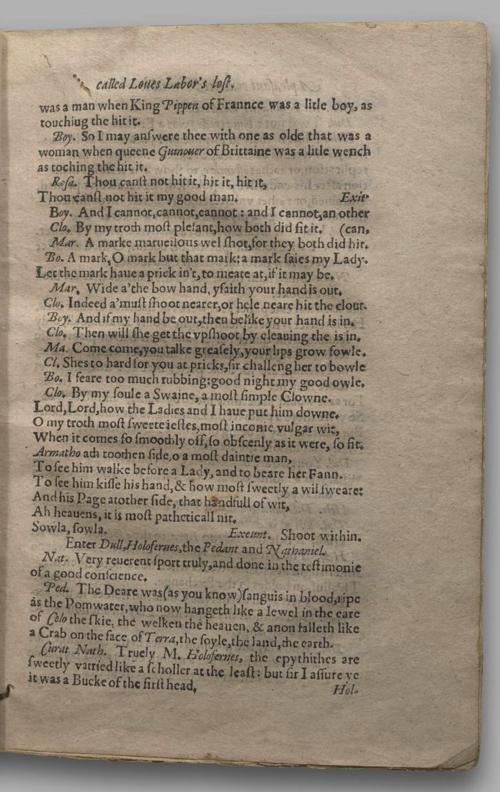 called Loues Labor's lost.
was a man when King Pippen of Frannce was a litle boy, as
touching the hit it.
Boy. So I may answere thee with one as olde that was a
woman when queene Guinouer of Brittaine was a litle wench
as toching the hit it.
Rosa. Thou canst not hit it, hit it, hit it,
Thou canst not hit it my good man. Exit
Boy. And I cannot, cannot, cannot: and I cannot, an other
Clo. By my troth most plesant, how both did fit it. (can,
Mar. A marke marueilous wel shot, for they both did hit.
Bo. A mark, O mark but that mark: a mark saies my Lady.
Let the mark haue a prick in't, to meate at, if it may be.
Mar. Wide a'the bow hand, yfaith your hand is out.
Clo. Indeed a'must shoot nearer, or hele neare hit the clout.
Boy. And if my hand be out, then belike your hand is in.
Clo. Then will she get the vpshoot by cleauing the is in.
Ma. Come come, you talke greasely, your lips grow fowle.
Cl. Shes to hard for you at pricks, sir challeng her to bowle
Bo. I feare too much rubbing: good night my good owle.
Clo. By my soule a Swaine, a most simple Clowne.
Lord, Lord, how the Ladies and I haue put him downe.
O my troth most sweete iestes, most inconie vulgar wit,
When it comes so smoothly off, so obscenly as it were, so fit.
Armatho ath toothen side, o a most daintie man,
To see him walke before a Lady, and to beare her Fann.
To see him kisse his hand, & how most sweetly a wil sweare:
And his Page atother side, that handfull of wit,
Ah heauens, it is most patheticall nit.
Sowla, sowla. Exeunt. Shoot within.
Enter Dull, Holofernes, the Pedant and Nathaniel.
Nat. Very reuerent sport truly, and done in the testimonie
of a good conscience.
Ped. The Deare was (as you know) sanguis in blood, ripe
as the Pomwater, who now hangeth like a Iewel in the eare
of Celo the skie, the welken the heauen, & anon falleth like
a Crab on the face of Terra, the soyle, the land, the earth.
Curat Nath. Truely M. Holofernes, the epythithes are
sweetly varried like a scholler at the least: but sir I assure ye
it was a Bucke of the first head,
Hol-